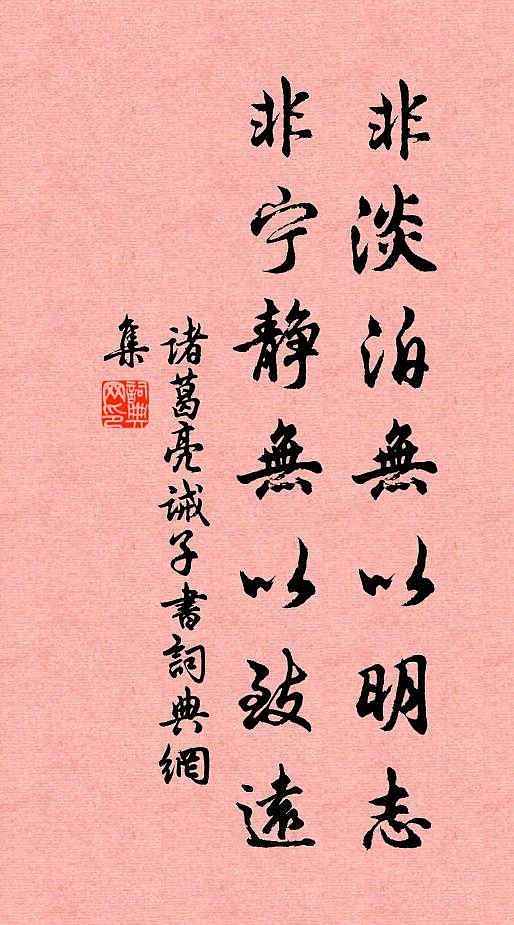 非淡泊無以明志
非宁静無以致遠
诸葛亮诫子書詞典網
集
詞典
网印